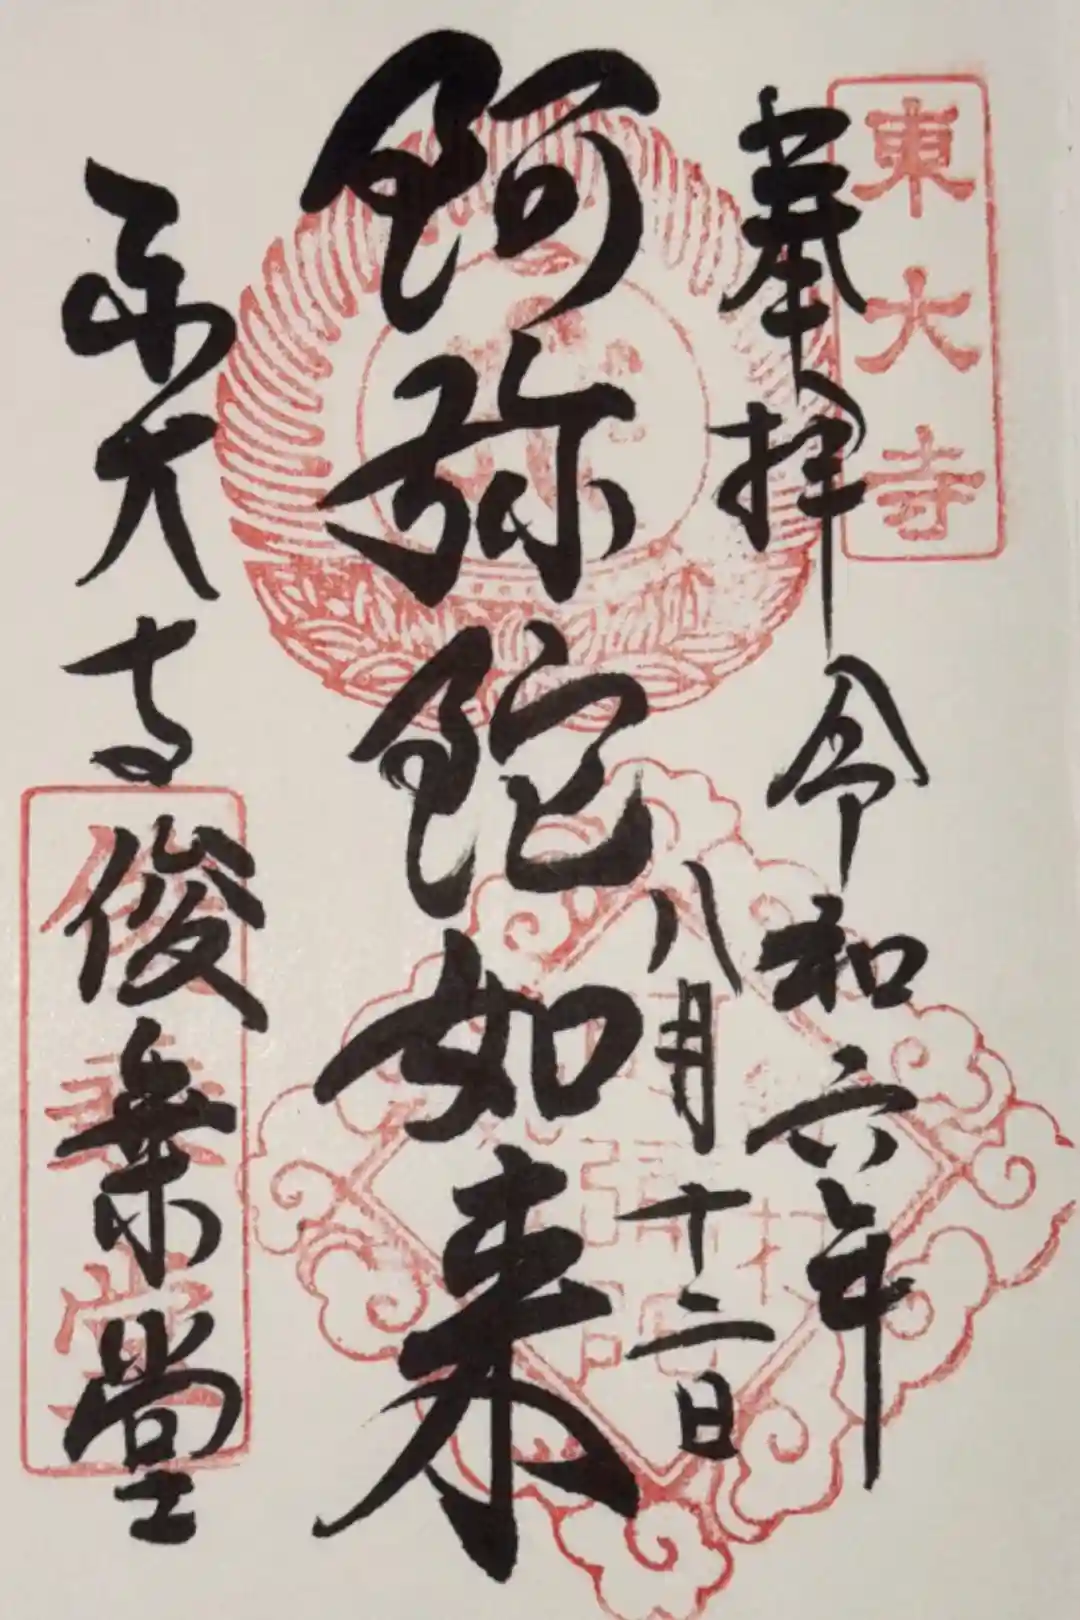 東大寺
奉拝 令和六年
八月十二日
阿弥陀如来
東大寺 俊乗堂
俊乗堂